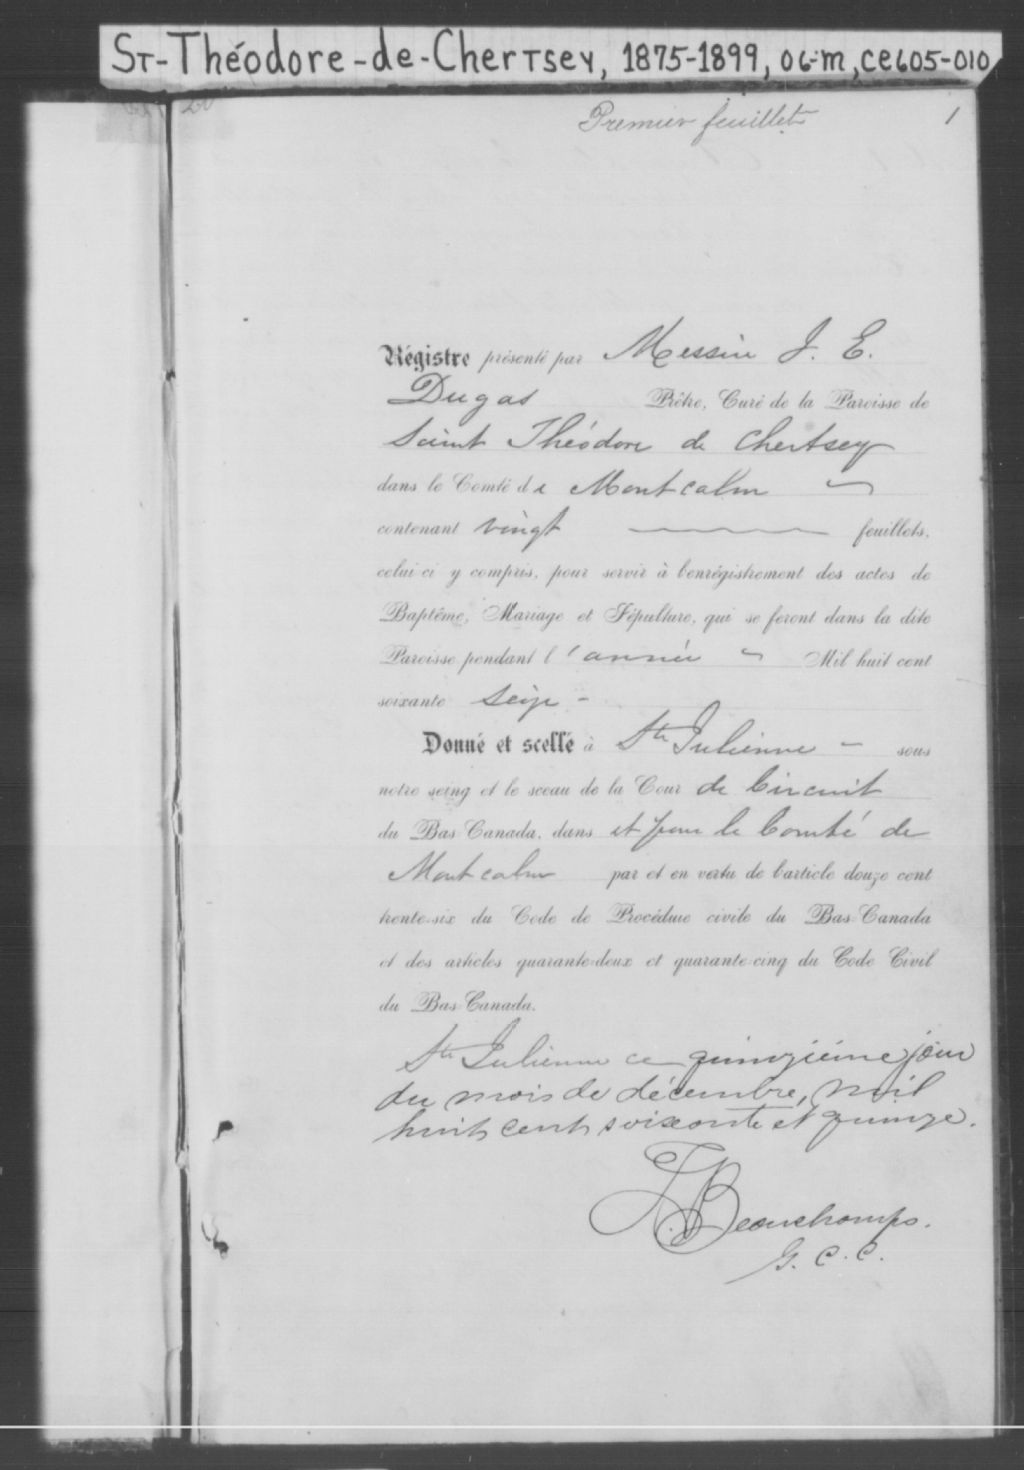 ST-Théodore-de-Chertsey, 1875-1899, 06-M, CE605-010
Premier feuillet 1
Régistre présenté par Messire J. E.
Dugas Prêtre, Curé de la Paroisse de
Saint Théodore de Chertsey
dans le Comté de Montcalm
contenant vingt feuillets,
celui ci y compris, pour servir à l'enrégistrement des actes de
Baptême, Mariage et Sépulture, qui se feront dans la dite
Paroisse pendant l'année Mil huit cent
soixante seize -
Donné et scellé à Ste Julienne - sous
notre seing et le sceau de la Cour de Circuit
du Bas-Canada, dans et pour le Comté de
Montcalm par et en vertu de l'article douze cent
trente-six du Code de Procédure civile du Bas-Canada
et des articles quarante-deux et quarante-cinq du Code Civil
du Bas-Canada.
Ste Julienne ce quinzième jour
du mois de décembre, mil
huit cent soixante et quinze.
Beauchamps.
G. C. C.